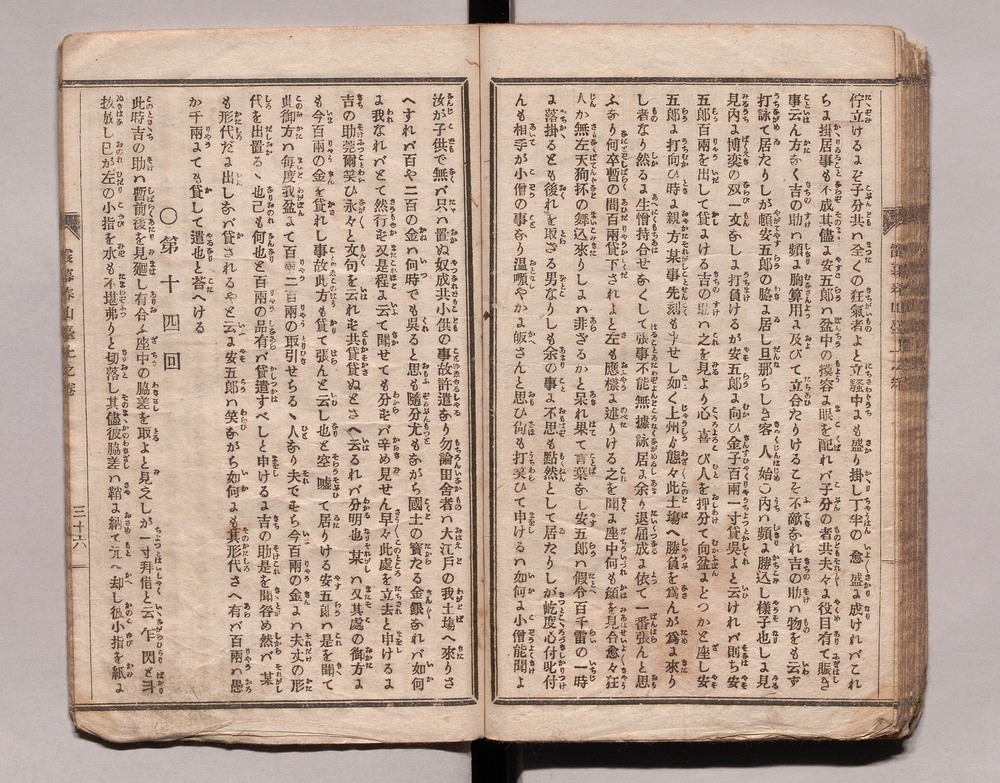 佇立けるよぞ子分共ハ全くの狂氣者よと立騷中よも盛り掛し丁半の愈盛よ成けれバこれ
ちよ掛居事も不成其儘よ安五郎ハ盆中の摸容よ眼を配れバ子分の者共夫々よ役目有て賑き
事云ん方なく吉の助ハ頻よ胸算用よ及びて立合たりけるこそ不敵なれ吉の助ハ物をも云ず
打詠て居たりしが頓安五郎の脇よ居し旦那らしき客人始〇内ハ頻よ勝込し樣子也しよ見
見内よ博奕の双一文なしよ打負けるが安五郎よ向ひ金子百兩一寸貸吳よと云けれバ則ち安
五郎百兩を出して貸よける吉の助ハ之を見より心よ喜び人を押分て向盆よとつかと座し安
五郎よ打向ひ時よ親方某事先刻も申せし如く上州より態々此土場へ勝負を爲んが爲よ來り
し者なり然るよ生憎持合せなくして張事不能無據詠居よ余り退屈成よ依て一番張んと思
ふなり何卒暫の間百兩貸下されよと左も應樣よ述りける之を聞よ座中何も顏を見合愈々狂
人か無左天狗抔の舞込來りしよハ非ざるかと呆れ果て言葉なし安五郎ハ假令百千雷の一時
よ落掛るとも後れを取ざる男なりしも余の事よ不思も點然として居たりしが屹度心付叱付
んも相手が小僧の事なり溫順やかよ皈さんと思ひ何も打笑ひて申けるハ如何よ小僧能聞よ
汝が子供で無バ只ハ置ぬ奴成共小供の事故許遣なり勿論田舍者ハ大江戶の我土場へ來りさ
へすれバ百や二百の金ハ何時でも吳ると思も隨分尤もながら國土の寳たる金銀なれバ如何
よ我なれバとて然行も又是程よ云て聞せても分ずバ辛め見せん早々此處を立去と申けるよ
吉の助莞爾笑ひ永々と文句を云れも共貸ぬとさへ云るれバ分明也某しハ又其處の御方よ
も今百兩の金を貸れし事故此方も貸て張んと云し也と空嘯て居りける安五郎ハ是を聞て
此御方ハ每度我盆よて百兩二百兩の取引せらるゝ人なり夫でもち今百兩の金よハ夫丈の形
代を出置るゝ也己も何也と百兩の品有バ貸遣すべしと申けるよ吉の助是を聞咎め然バ某
も形代だよ出しなバ貸されるやと云よ安五郎ハ笑ながら如何よも其形代さへ有バ百兩ハ愚
か千兩よても貸して遣也と荅へける
〇第十四回
此時吉の助ハ暫前後を見廻し有合ふ座中の脇差を取よと見えしが一寸拜借と云乍閃と計
拔放し己が左の小指を水も不堪弗りと切落し其儘彼脇差ハ鞘よ納て元へ却し彼小指を紙よ
三十六